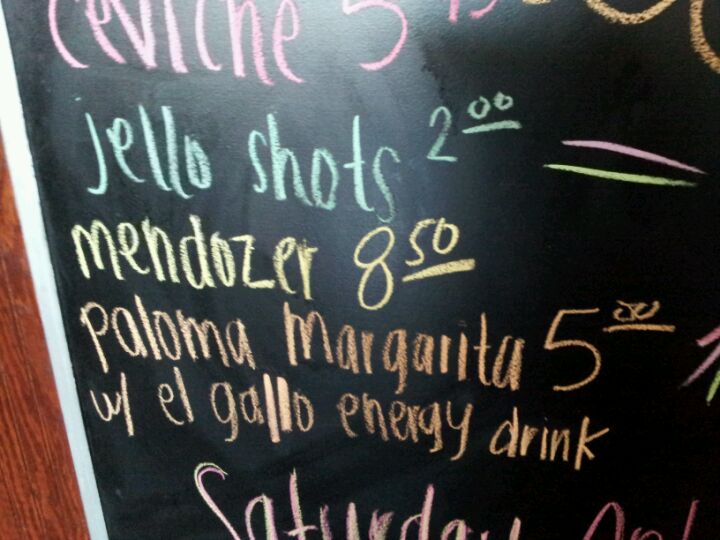 ceviche 5
jello shots 2 00
mendozer 8 50
paloma margarita 5 00
w/ el gallo energy drink
Saturday